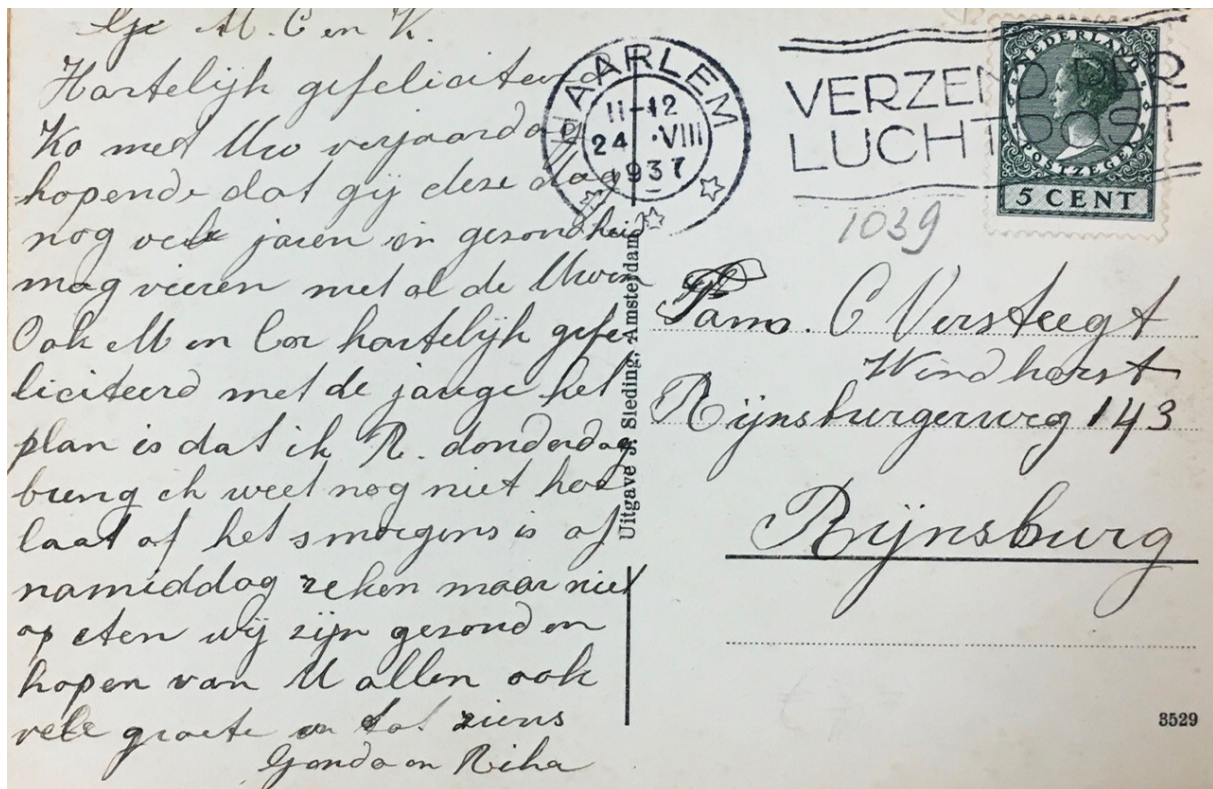 M. C en K.
Hartelijk gefeliciteerd
Ko met Uw verjaardag
hopende dat gij deze dag
nog vele jaren in gezondheid
mag vieren met al de Uwen
Ook M en Cor hartelijk gefe
liciteerd met de jarige het
plan is dat ik R. donderdag
breng ik weet nog niet hoe
laat of het smorgens is of
namiddag reken maar niet
op eten wij zijn gezond en
hopen van U allen ook
vele groete en tot ziens
Gonda en Riha
HAARLEM
11-12
24 VIII
1937
VERZEND PER
LUCHTPOST
NEDERLAND
POSTZEGEL
5 CENT
1039
Uitgave J. Sleding, Amsterdam
Fam. C Versteegt
Windhorst
Rijnsburgerweg 143
Rijnsburg
3529